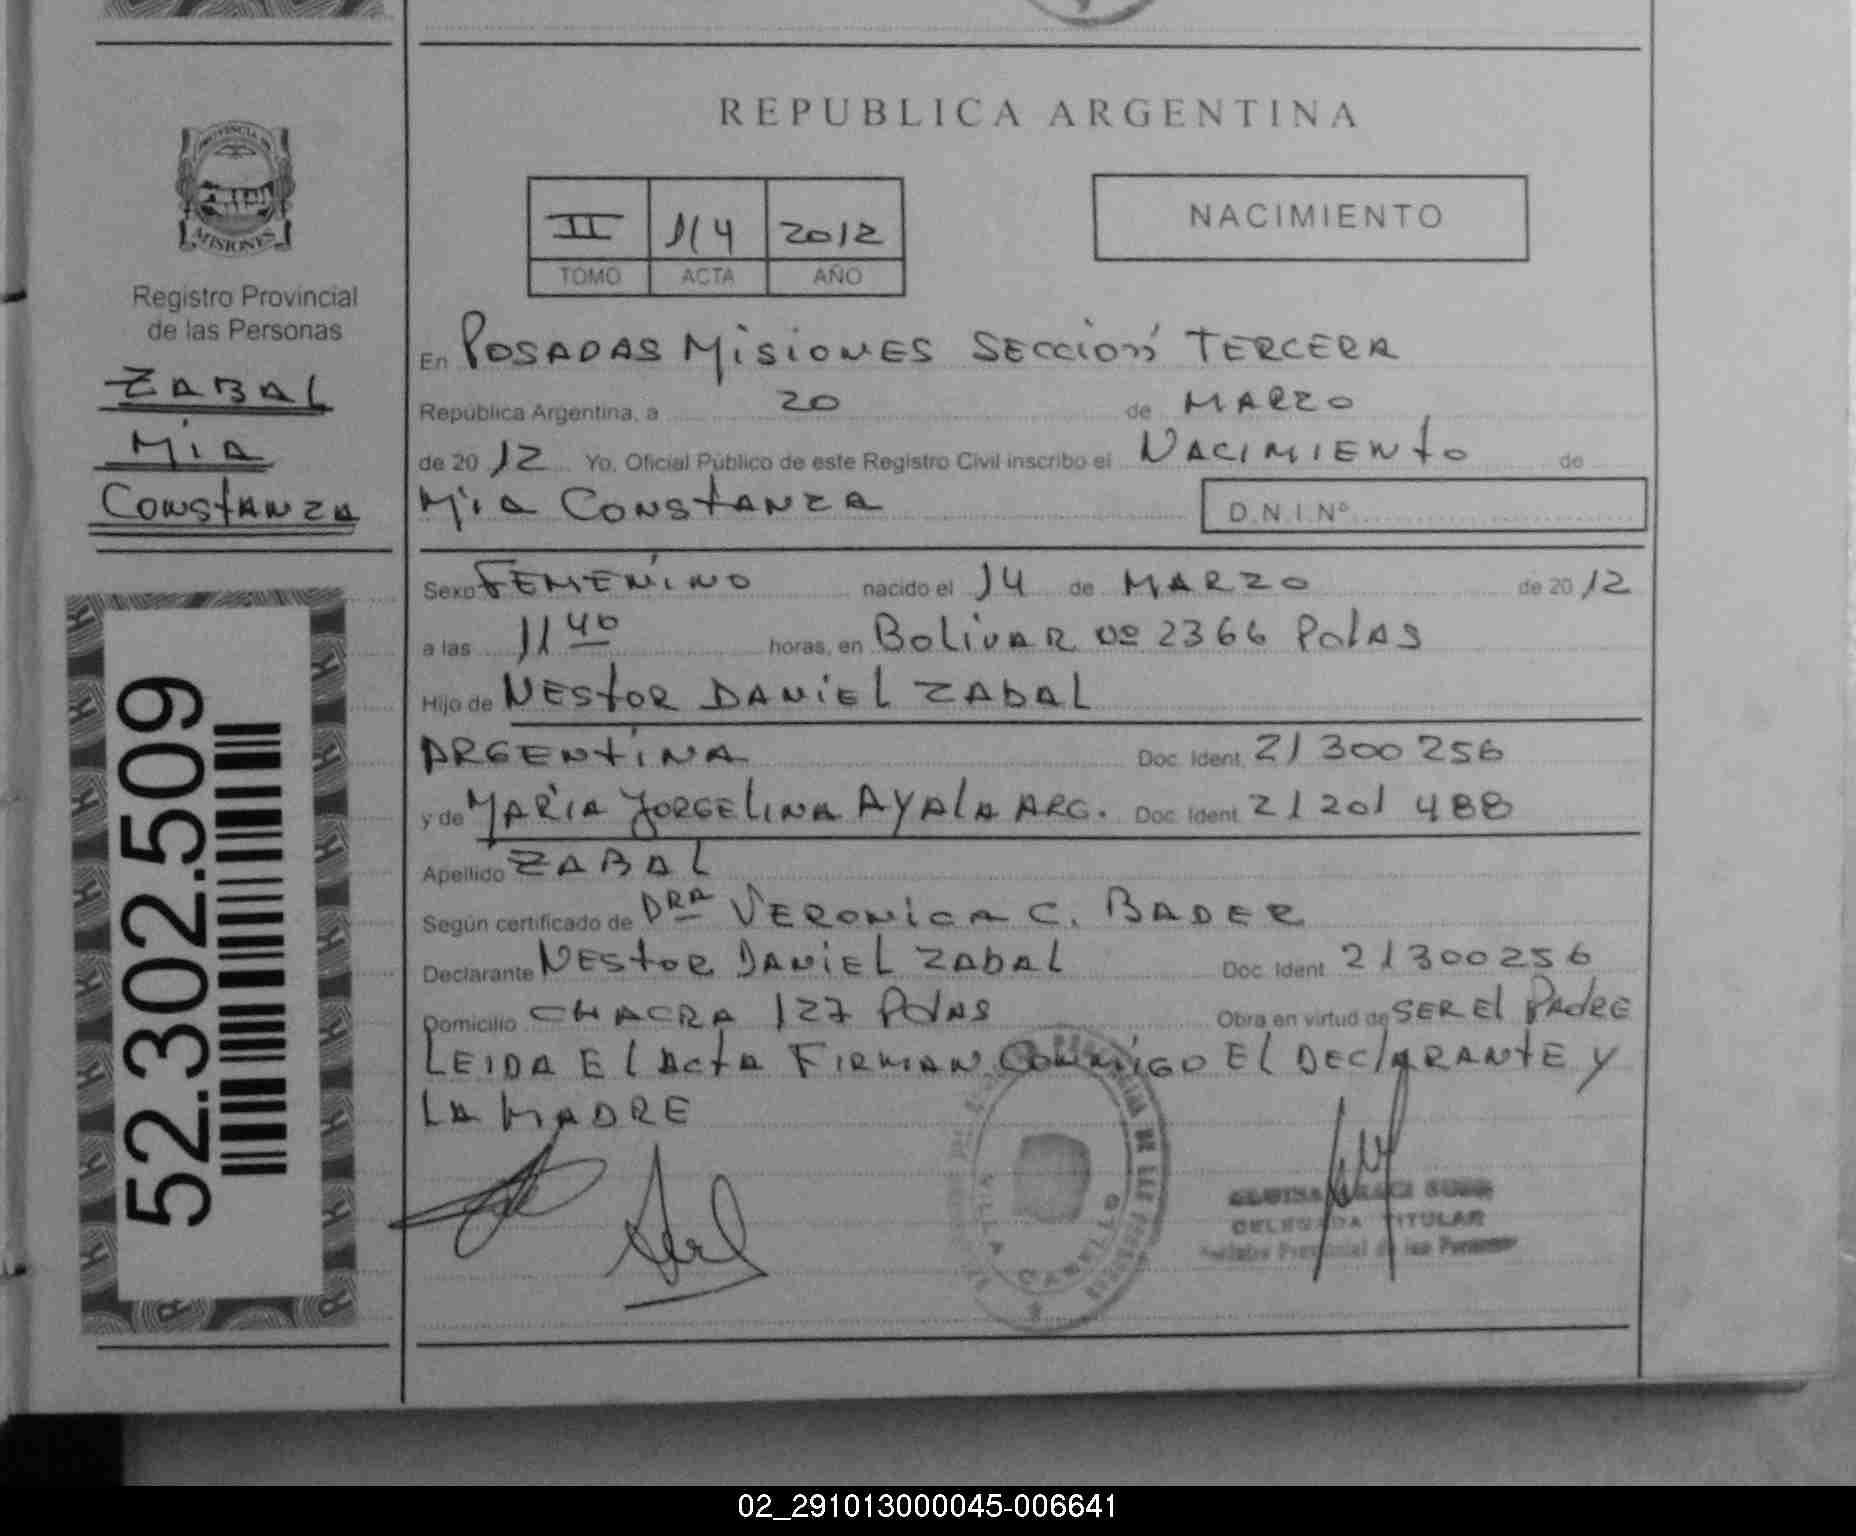 REPUBLICA ARGENTINA
II 114 2012
TOMO ACTA AÑO
NACIMIENTO
PROVINCIA DE
MISIONES
Registro Provincial
de las Personas
ZABAL
Mía
CONSTANZA
52.302.509
En POSADAS MISIONES SECCIÓN TERCERA
República Argentina, a 20 de MARZO
de 2012 Yo, Oficial Público de este Registro Civil inscribo el NACIMIENTO de
Mía CONSTANZA D.N.I.Nº
Sexo FEMENINO nacido el 14 de MARZO de 2012
a las 11 40 horas, en BOLIVAR Nº 2366 PdAS
Hijo de NESTOR DANIEL ZABAL
ARGENTINA Doc. Ident. 21300256
y de MARÍA JORGELINA AYALA ARG. Doc. Ident. 21201488
Apellido ZABAL
Según certificado de DRA VERONICA C. BADER
Declarante NESTOR DANIEL ZABAL Doc. Ident. 21300256
Domicilio CHACRA 127 PdAS Obra en virtud de SER El PADRE
LEIDA El ACTA FIRMAN CONMIGO El DECLARANTE Y
LA MADRE
VILLA CABELLO
DELEGADA TITULAR
Registro Provincial de las Personas
02_291013000045-006641